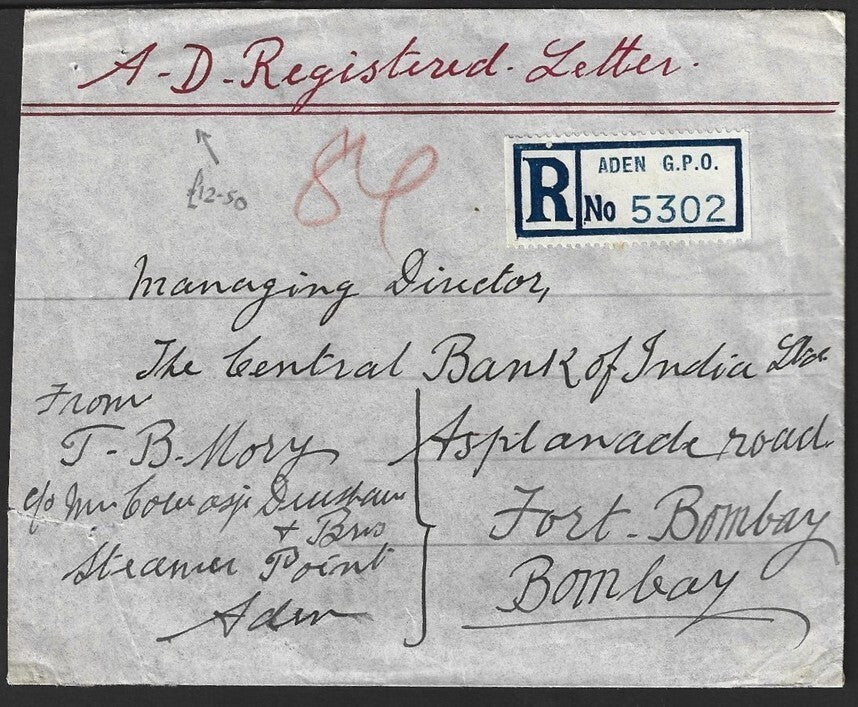 A-D-Registered. Letter.
£12-50
84
R ADEN G.P.O.
No 5302
Managing Director,
The Central Bank of India Ltd.
Asplanade road
Fort-Bombay
Bombay
From
T-B. Mory
c/o Cowasji Dinshaw
+ Bros
Steamer Point
Aden